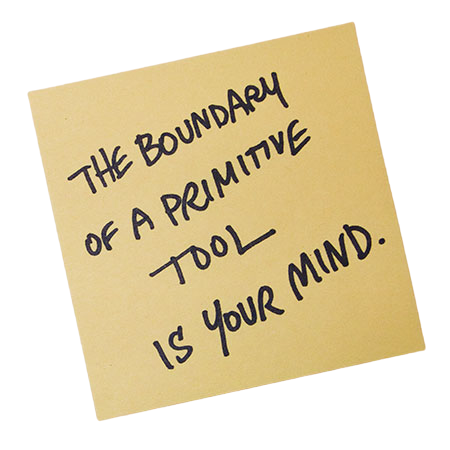 THE BOUNDARY
OF A PRIMITIVE
TOOL
IS YOUR MIND.